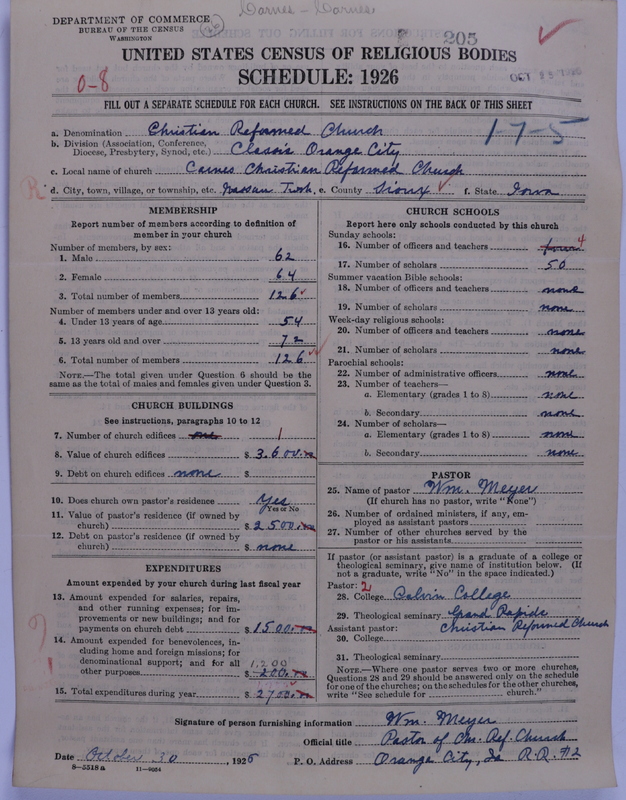 Carnes - Carnes
DEPARTMENT OF COMMERCE
BUREAU OF THE CENSUS
WASHINGTON
205
UNITED STATES CENSUS OF RELIGIOUS BODIES
SCHEDULE: 1926
0-8
OCT 23
FILL OUT A SEPARATE SCHEDULE FOR EACH CHURCH. SEE INSTRUCTIONS ON THE BACK OF THIS SHEET
a. Denomination Christian Reformed Church
1-7-5
b. Division (Association, Conference, Diocese, Presbytery, Synod, etc.) Classis Orange City
c. Local name of church Carnes Christian Reformed Church
d. City, town, village, or township, etc. Nassau Twsh. e. County Sioux f. State Iowa
MEMBERSHIP
Report number of members according to definition of
member in your church
Number of members, by sex:
1. Male 62
2. Female 64
3. Total number of members 126
Number of members under and over 13 years old:
4. Under 13 years of age 54
5. 13 years old and over 72
6. Total number of members 126
NOTE.—The total given under Question 6 should be the
same as the total of males and females given under Question 3.
CHURCH BUILDINGS
See instructions, paragraphs 10 to 12
7. Number of church edifices one 1
8. Value of church edifices $ 3.600.00
9. Debt on church edifices none $
10. Does church own pastor's residence Yes
Yes or No
11. Value of pastor's residence (if owned by
church) $ 2500.00
12. Debt on pastor's residence (if owned by
church) $ none
EXPENDITURES
Amount expended by your church during last fiscal year
13. Amount expended for salaries, repairs,
and other running expenses; for im-
provements or new buildings; and for
payments on church debt $ 1500.00
14. Amount expended for benevolences, in-
cluding home and foreign missions; for
denominational support; and for all 1,200
other purposes $ 200.00
15. Total expenditures during year $ 2700.00
CHURCH SCHOOLS
Report here only schools conducted by this church
Sunday schools:
16. Number of officers and teachers four 4
17. Number of scholars 50
Summer vacation Bible schools:
18. Number of officers and teachers none
19. Number of scholars none
Week-day religious schools:
20. Number of officers and teachers none
21. Number of scholars none
Parochial schools:
22. Number of administrative officers none
23. Number of teachers—
a. Elementary (grades 1 to 8) none
b. Secondary none
24. Number of scholars—
a. Elementary (grades 1 to 8) none
b. Secondary none
PASTOR
25. Name of pastor Wm. Meyer
(If church has no pastor, write "None")
26. Number of ordained ministers, if any, em-
ployed as assistant pastors
27. Number of other churches served by the
pastor or his assistants
If pastor (or assistant pastor) is a graduate of a college or
theological seminary, give name of institution below. (If
not a graduate, write "No" in the space indicated.)
Pastor: 2
28. College Calvin College
29. Theological seminary Grand Rapids
Assistant pastor: Christian Reformed Church
30. College
31. Theological seminary
NOTE.—Where one pastor serves two or more churches,
Questions 28 and 29 should be answered only on the schedule
for one of the churches; on the schedules for the other churches,
write "See schedule for church."
Signature of person furnishing information Wm. Meyer
Official title Pastor of Chr. Ref. Church
Date October 30, 1926 P. O. Address Orange City, Ia R.R. #2
8-5518a 11-9064